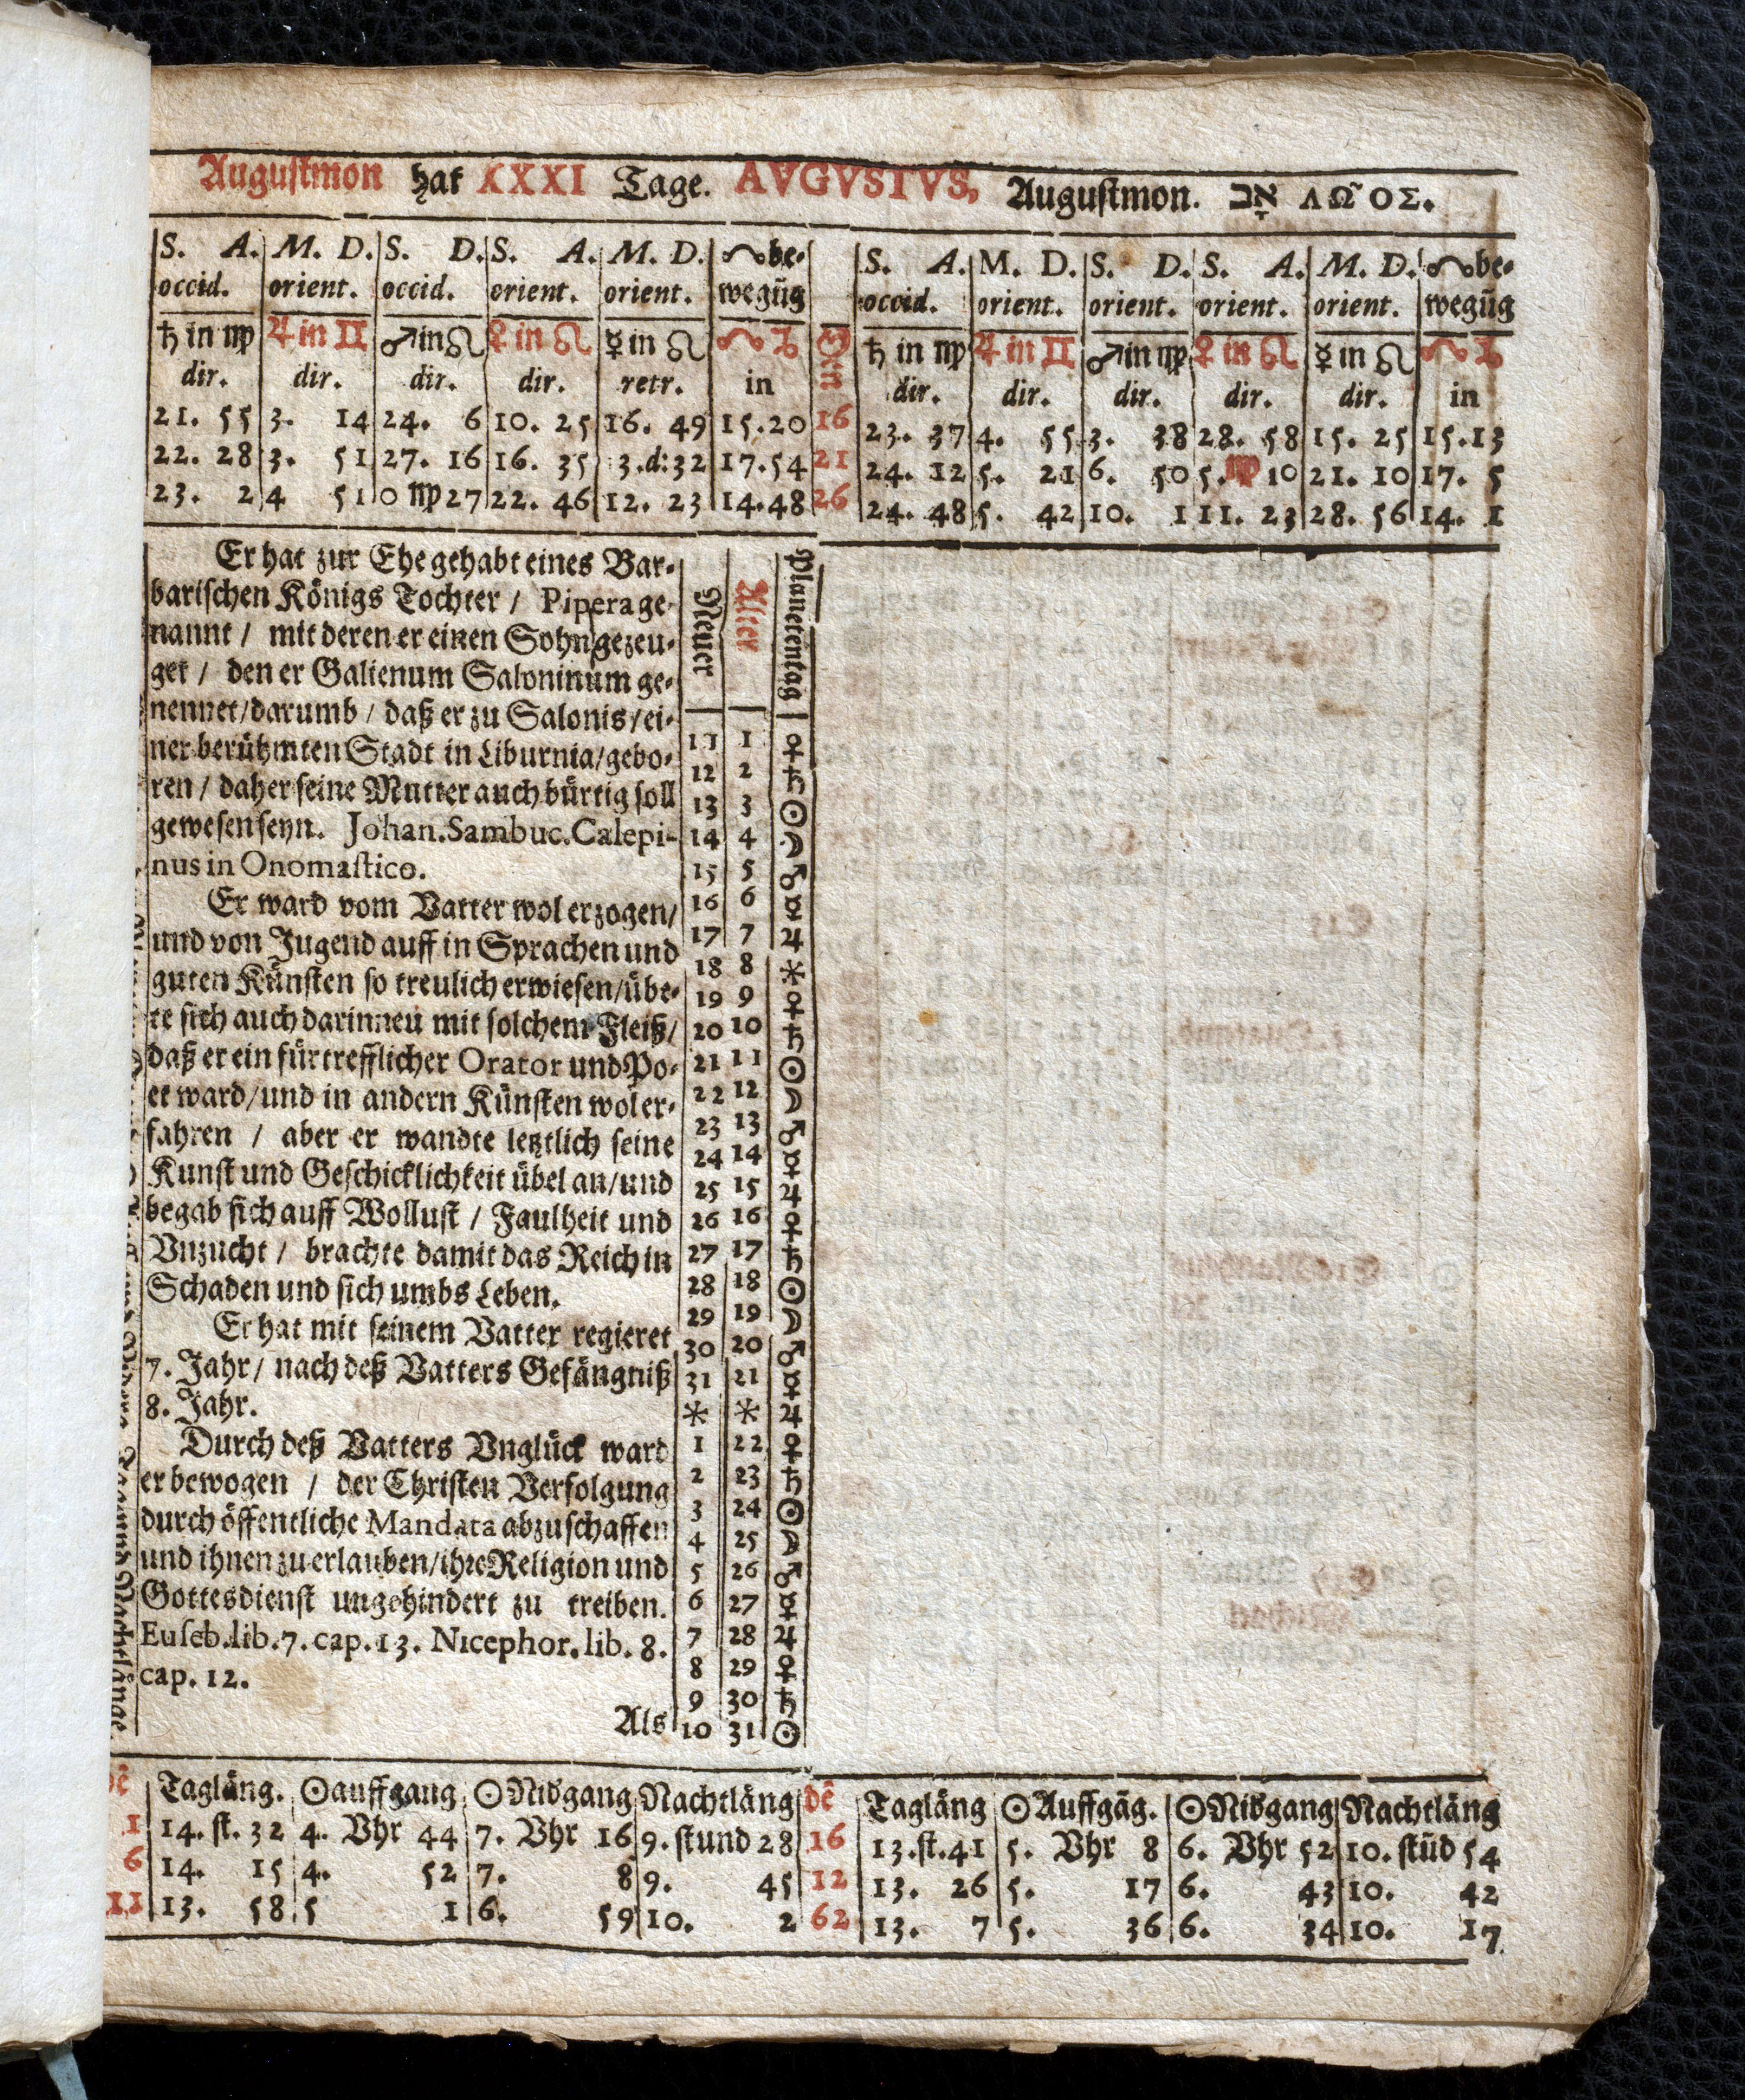 Augustmon hat XXXI Tage. AVGVSTVS, Augustmon. אָב ΛΩ͂ΟΣ.
S. A. M. D. S. D. S. A. M. D. ☊ be-
occid. orient. occid. orient. orient. wegūg
♄ in ♍ ♃ in ♊ ♂ in ♌ ♀ in ♌ ☿ in ♌ ☊ ♑
dir. dir. dir. dir. retr. in
21. 55 3. 14 24. 6 10. 25 16. 49 15.20
22. 28 3. 51 27. 16 16. 35 3.d:32 17.54
23. 2 4 51 0 ♍ 27 22. 46 12. 23 14.48
S. A. M. D. S. D. S. A. M. D. ☊ be-
occid. orient. orient. orient. orient. wegūg
♄ in ♍ ♃ in ♊ ♂ in ♍ ♀ in ♌ ☿ in ♌ ☊ ♑
dir. dir. dir. dir. dir. in
16 23. 37 4. 55 3. 38 28. 58 15. 25 15.13
21 24. 12 5. 21 6. 50 5. ♍ 10 21. 10 17. 5
26 24. 48 5. 42 10. 1 11. 23 28. 56 14. 1
Er hat zur Ehe gehabt eines Bar-
barischen Königs Tochter / Pipera ge-
nannt / mit deren er einen Sohn gezeu-
get / den er Galienum Saloninum ge-
nennet/darumb / daß er zu Salonis/ei-
ner berühmten Stadt in Liburnia/gebo-
ren / daher seine Mutter auch bürtig soll
gewesen seyn. Johan.Sambuc.Calepi-
nus in Onomastico.
Er ward vom Vatter wol erzogen/
und von Jugend auff in Sprachen und
guten Künsten so treulich erwiesen/übe-
te sich auch darinneu mit solchem Fleiß/
daß er ein fürtrefflicher Orator und Po-
et ward/und in andern Künsten wol er-
fahren / aber er wandte letztlich seine
Kunst und Geschicklichkeit übel an/und
begab sich auff Wollust / Faulheit und
Vnzucht / brachte damit das Reich in
Schaden und sich umbs Leben.
Er hat mit seinem Vatter regieret
7. Jahr/ nach deß Vatters Gefängniß
8. Jahr.
Durch deß Vatters Vnglück ward
er bewogen / der Christen Verfolgung
durch öffentliche Mandata abzuschaffen
und ihnen zu erlauben/ihre Religion und
Gottesdienst ungehindert zu treiben.
Euseb.lib.7. cap.13. Nicephor.lib.8.
cap. 12.
Als
Neuer Alter Planetentag
11 1 ♀
12 2 ♄
13 3 ☉
14 4 ☽
15 5 ♂
16 6 ☿
17 7 ♃
18 8 *
19 9 ♀
20 10 ♄
21 11 ☉
22 12 ☽
23 13 ♂
24 14 ☿
25 15 ♃
26 16 ♀
27 17 ♄
28 18 ☉
29 19 ☽
30 20 ♂
31 21 ☿
* * ♃
1 22 ♀
2 23 ♄
3 24 ☉
4 25 ☽
5 26 ♂
6 27 ☿
7 28 ♃
8 29 ♀
9 30 ♄
10 31 ☉
Nachtlänge
Tagläng. ☉auffgang ☉Nidgang Nachtläng
1 14. st. 32 4. Vhr 44 7. Vhr 16 9. stund 28
6 14. 15 4. 52 7. 8 9. 45
11 13. 58 5 1 6. 59 10. 2
dē Tagläng ☉Auffgāg. ☉Nidgang Nachtläng
16 13.st.41 5. Vhr 8 6. Vhr 52 10. stūd 54
12 13. 26 5. 17 6. 43 10. 42
62 13. 7 5. 36 6. 34 10. 17